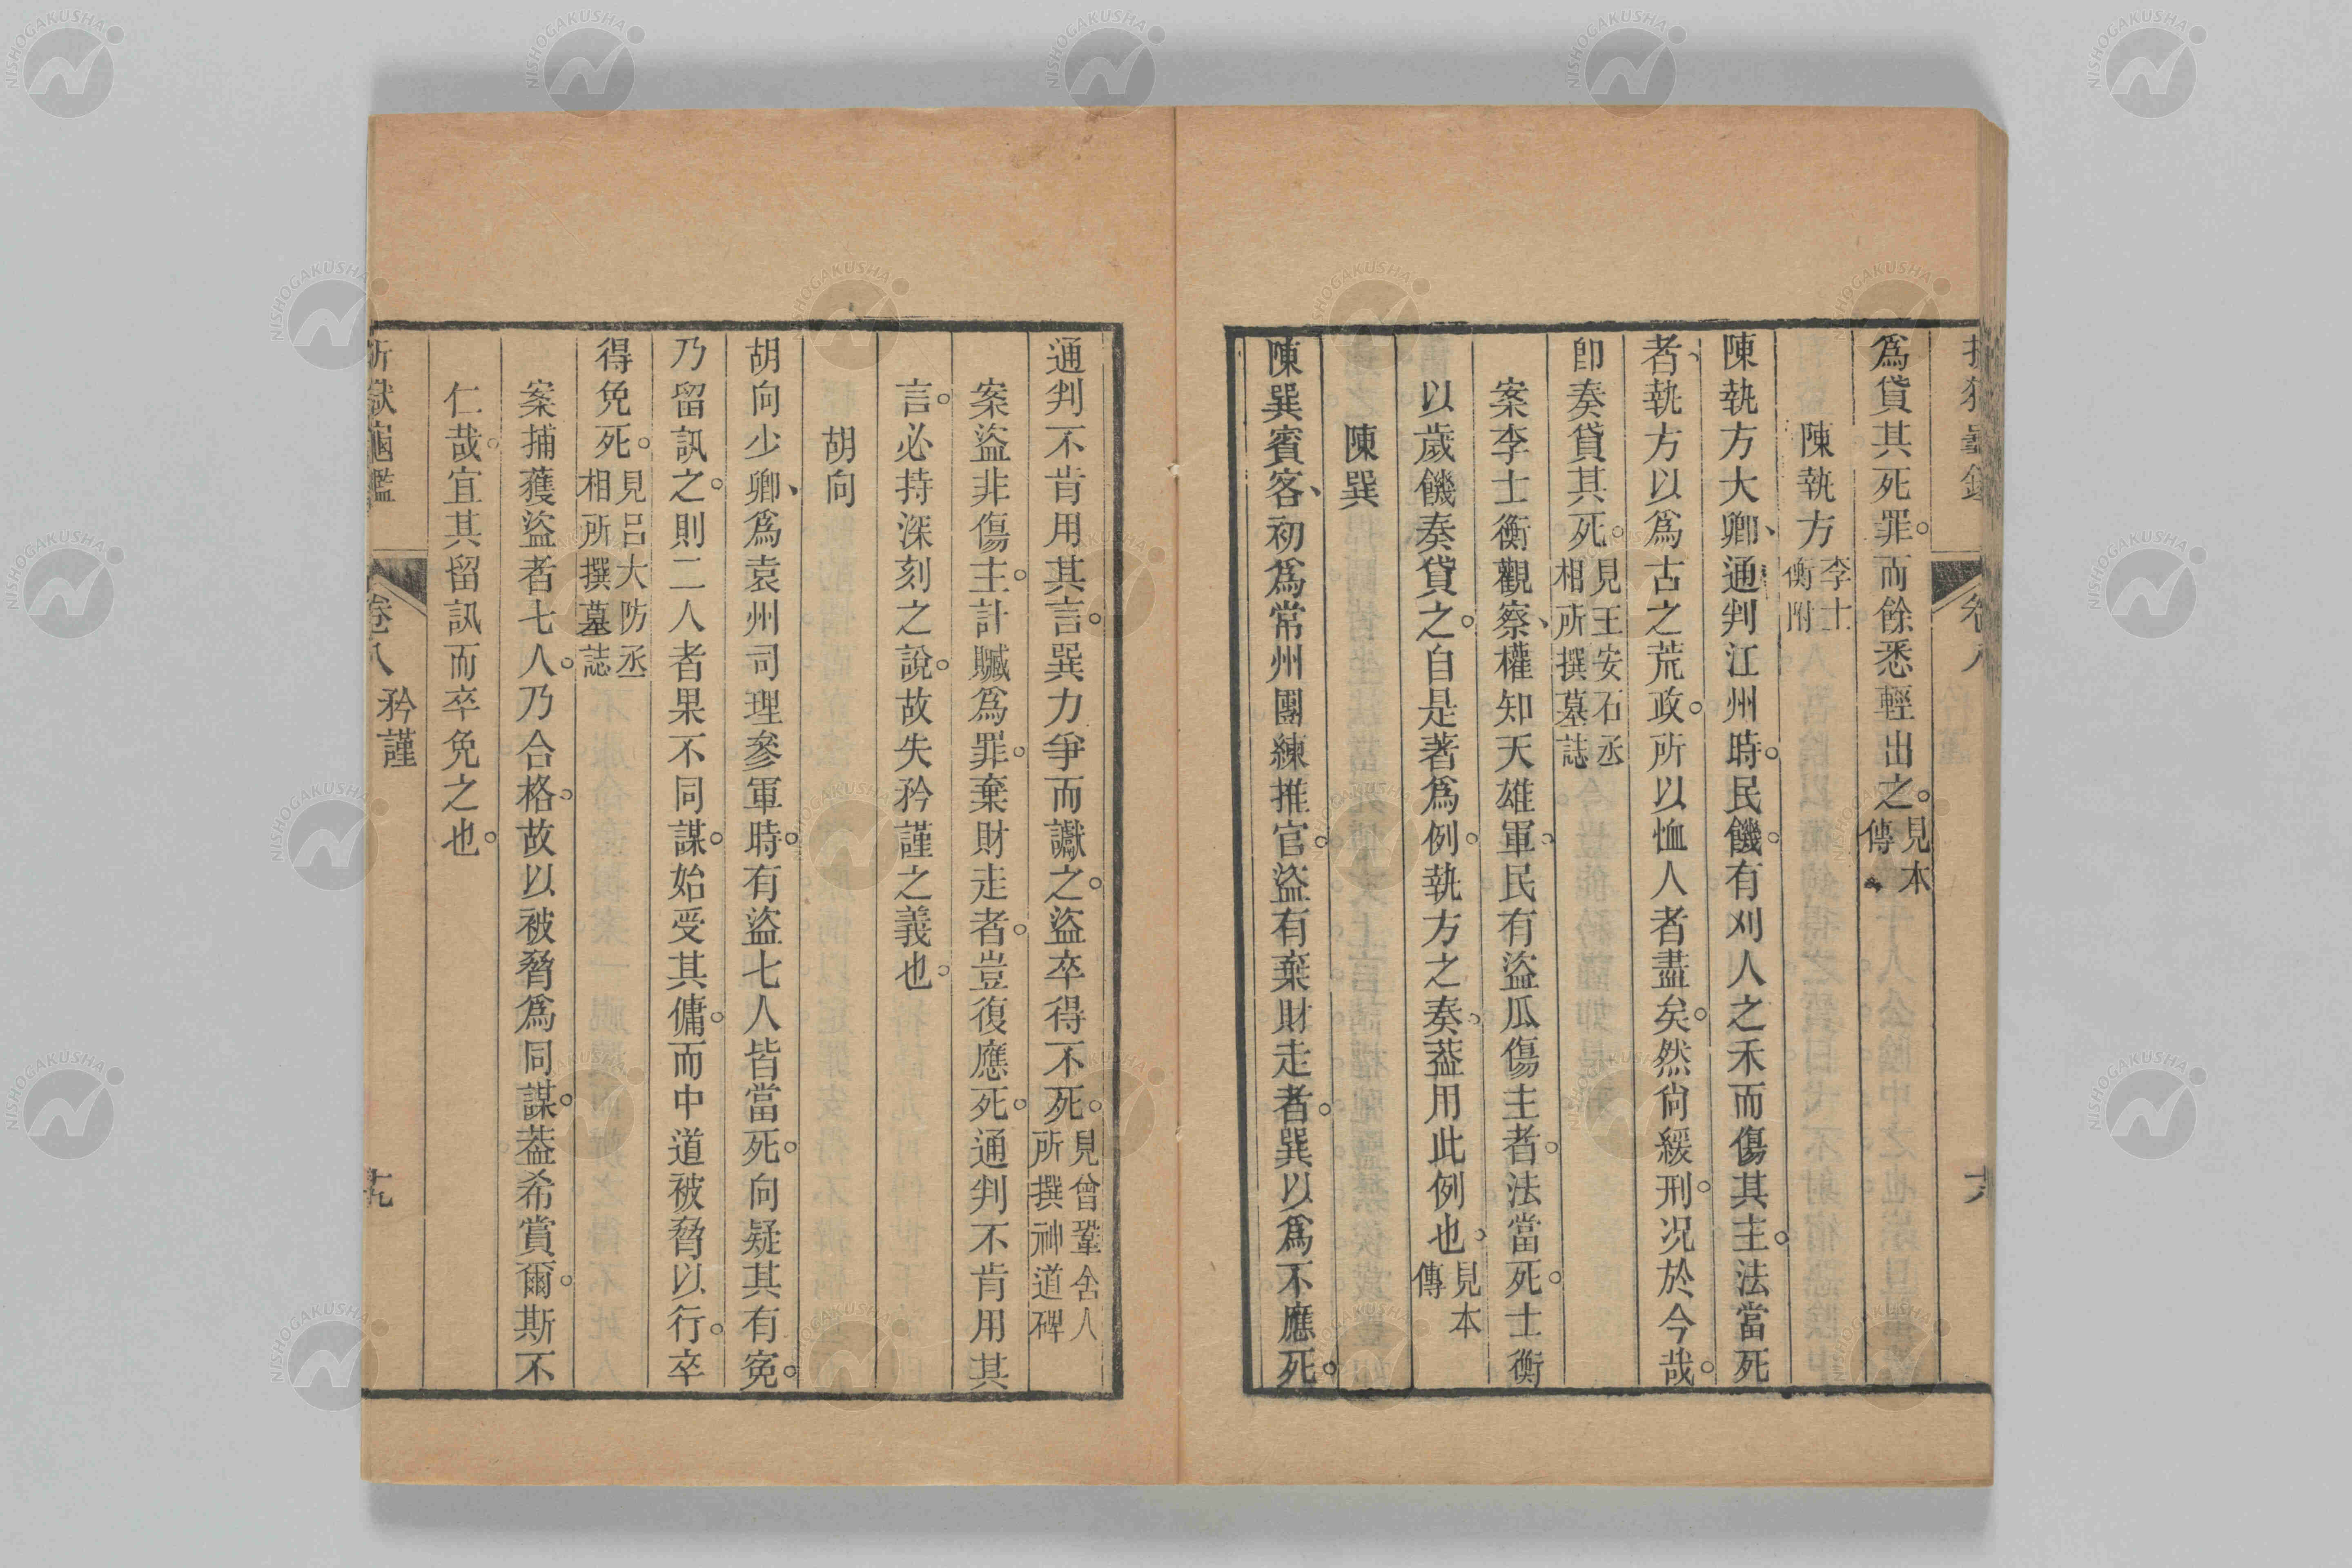 爲貸其死罪。而餘悉輕出之。見本傳
陳執方李士衡附
陳執方大卿、通判江州時。民饑。有刈人之禾而傷其主。法當死
者、執方以爲古之荒政。所以恤人者盡矣。然尙緩刑。况於今哉。
卽奏貸其死。見王安石丞相所撰墓誌
案李士衡觀察、權知天雄軍。民有盜瓜傷主者。法當死。士衡
以歲饑奏貸之。自是著爲例。執方之奏。葢用此例也。見本傳
陳巽
陳巽賓客、初爲常州團練推官。盜有棄財走者。巽以爲不應死。
通判不肯用其言。巽力爭而讞之。盜卒得不死。見曾鞏舍人所撰神道碑
案盜非傷主。計贓爲罪。棄財走者。豈復應死。通判不肯用其
言。必持深刻之說。故失矜謹之義也。
胡向
胡向少卿、爲袁州司理參軍時。有盜七人皆當死。向疑其有寃。
乃留訊之。則二人者果不同謀。始受其傭。而中道被脅以行。卒
得免死。見呂大防丞相所撰墓誌
案捕獲盜者七人。乃合格。故以被脅爲同謀。葢希賞爾。斯不
仁哉。宜其留訊而卒免之也。
卷八 矜謹 十九